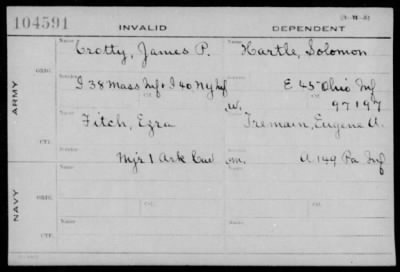 104591
INVALID DEPENDENT
Name Crotty, James P. Name Hartle, Solomon
ORIG. Service I 38 Mass Inf + I 40 NY Inf E 45 Ohio Inf
ARMY
W. 97197
Fitch, Ezra Tremain, Eugene A.
CTF. Mjr 1 Ark Cav m. A 149 Pa Inf
Name Name
ORIG.
NAVY
Name Name
CTF.